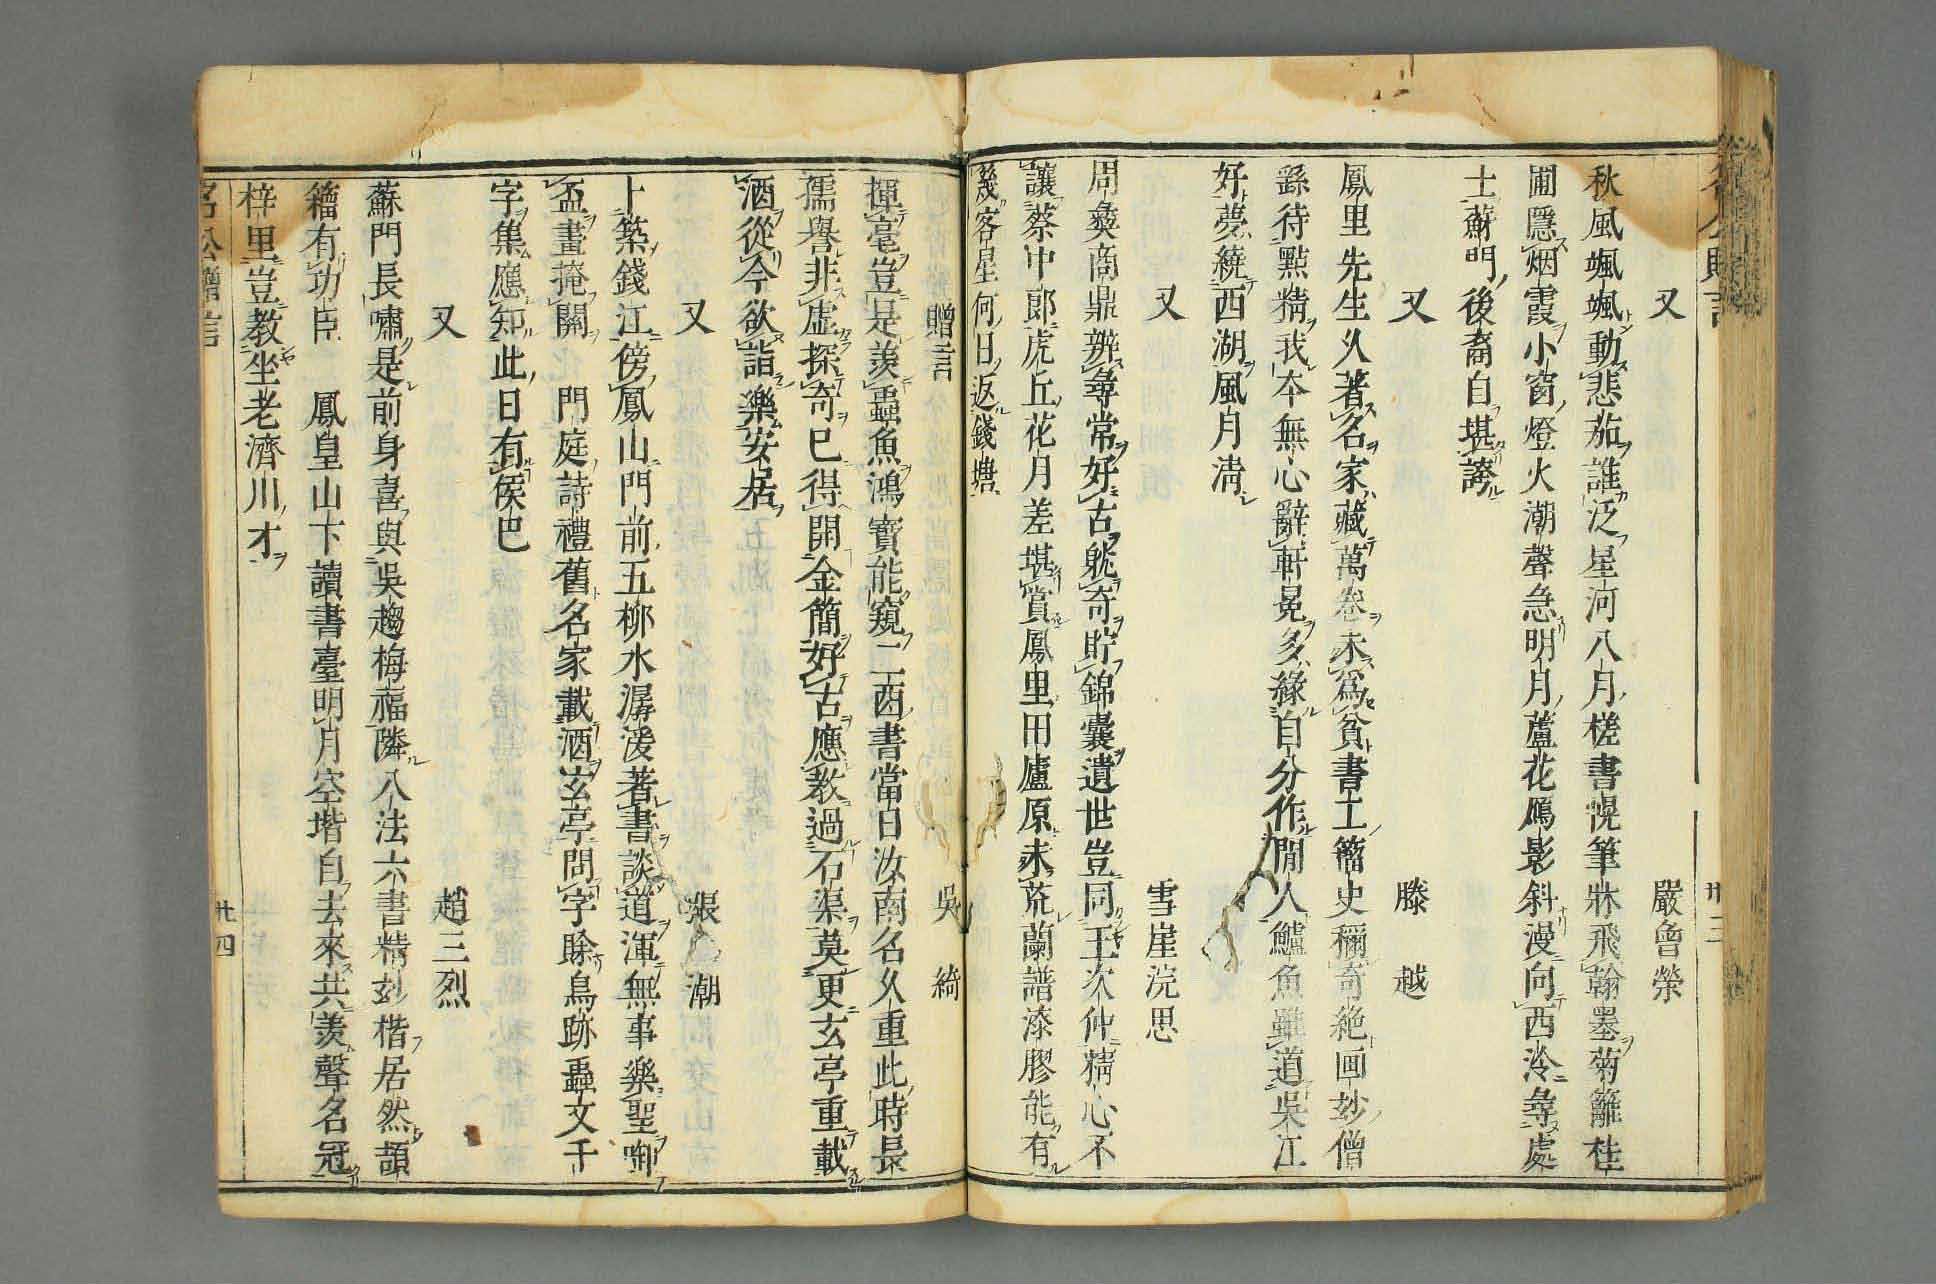 又　嚴曾榮
秋風颯颯動悲茄誰泛星河八月槎書幌筆牀飛翰墨菊籬桂
圃隱烟霞小窗燈火潮聲急明月蘆花鴈影斜漫向西泠尋處
士蘇門後裔自堪誇
又　滕越
鳳里先生久著名家藏萬卷未爲貧書工籀史稱奇絶画妙僧
繇待點精我本無心辭軒冕多緣自分作閒人鱸魚雖道吳江
好夢繞西湖風月淸
又　雪崖浣思
周彝商鼎辨尋常好古躭奇貯錦囊遺世豈同王次仲精心不
讓蔡中郎虎丘花月差堪賞鳳里田廬原未荒蘭譜漆膠能有
幾客星何日返錢塘
贈言　吳綺
揮毫豈是羨蟲魚鴻寳能窺二酉書當日汝南名久重此時長
孺譽非虛探奇巳得開金簡好古應教過石渠莫更玄亭重載
酒從今欲詣樂安居
又　張潮
卜築錢江傍鳳山門前五柳水潺湲著書談道渾無事樂聖啣
盃晝掩關　門庭詩禮舊名家載酒玄亭問字賒鳥跡蟲文千
字集應知此日有侯巴
又　趙三烈
蘇門長嘯是前身喜與吳趨梅福隣八法六書精玅楷居然頡
籀有功臣　鳳皇山下讀書臺明月空堦自去來共羨聲名冠
梓里豈教坐老濟川才
名公贈言　廿四